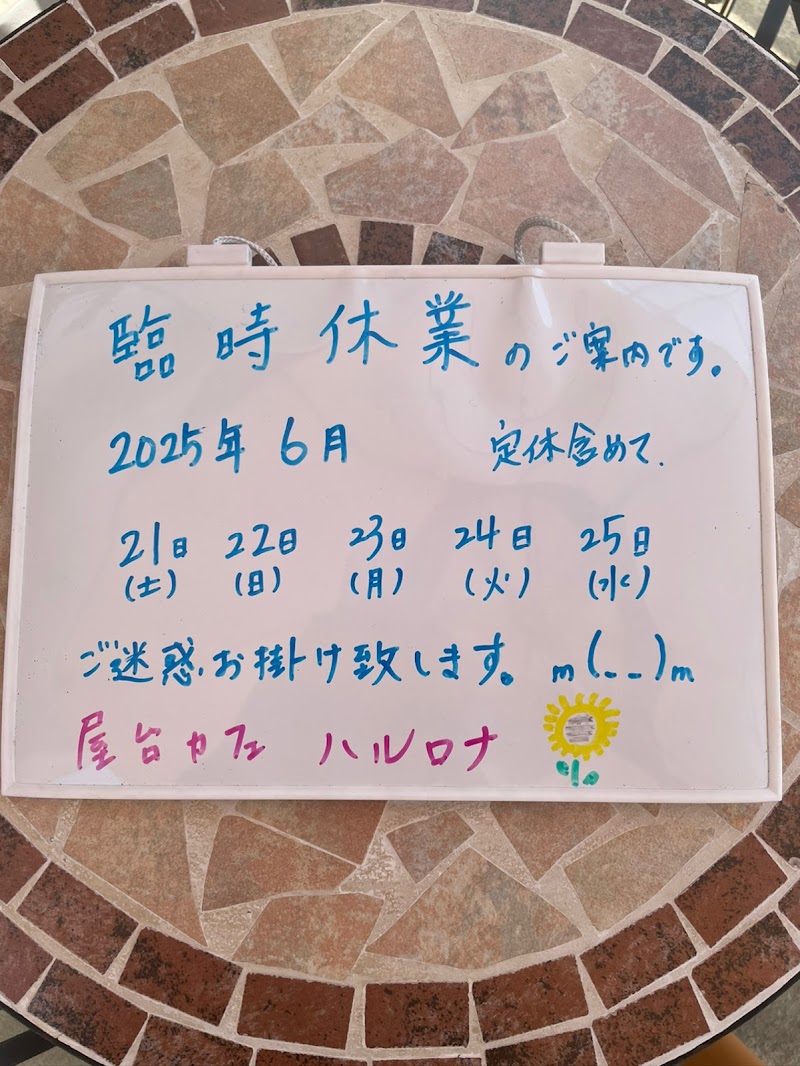 臨時休業のご案内です。
2025年 6月 定休含めて、
21日 22日 23日 24日 25日
(土) (日) (月) (火) (水)
ご迷惑お掛け致します。 m(_ _)m
屋台カフェ ハルロナ